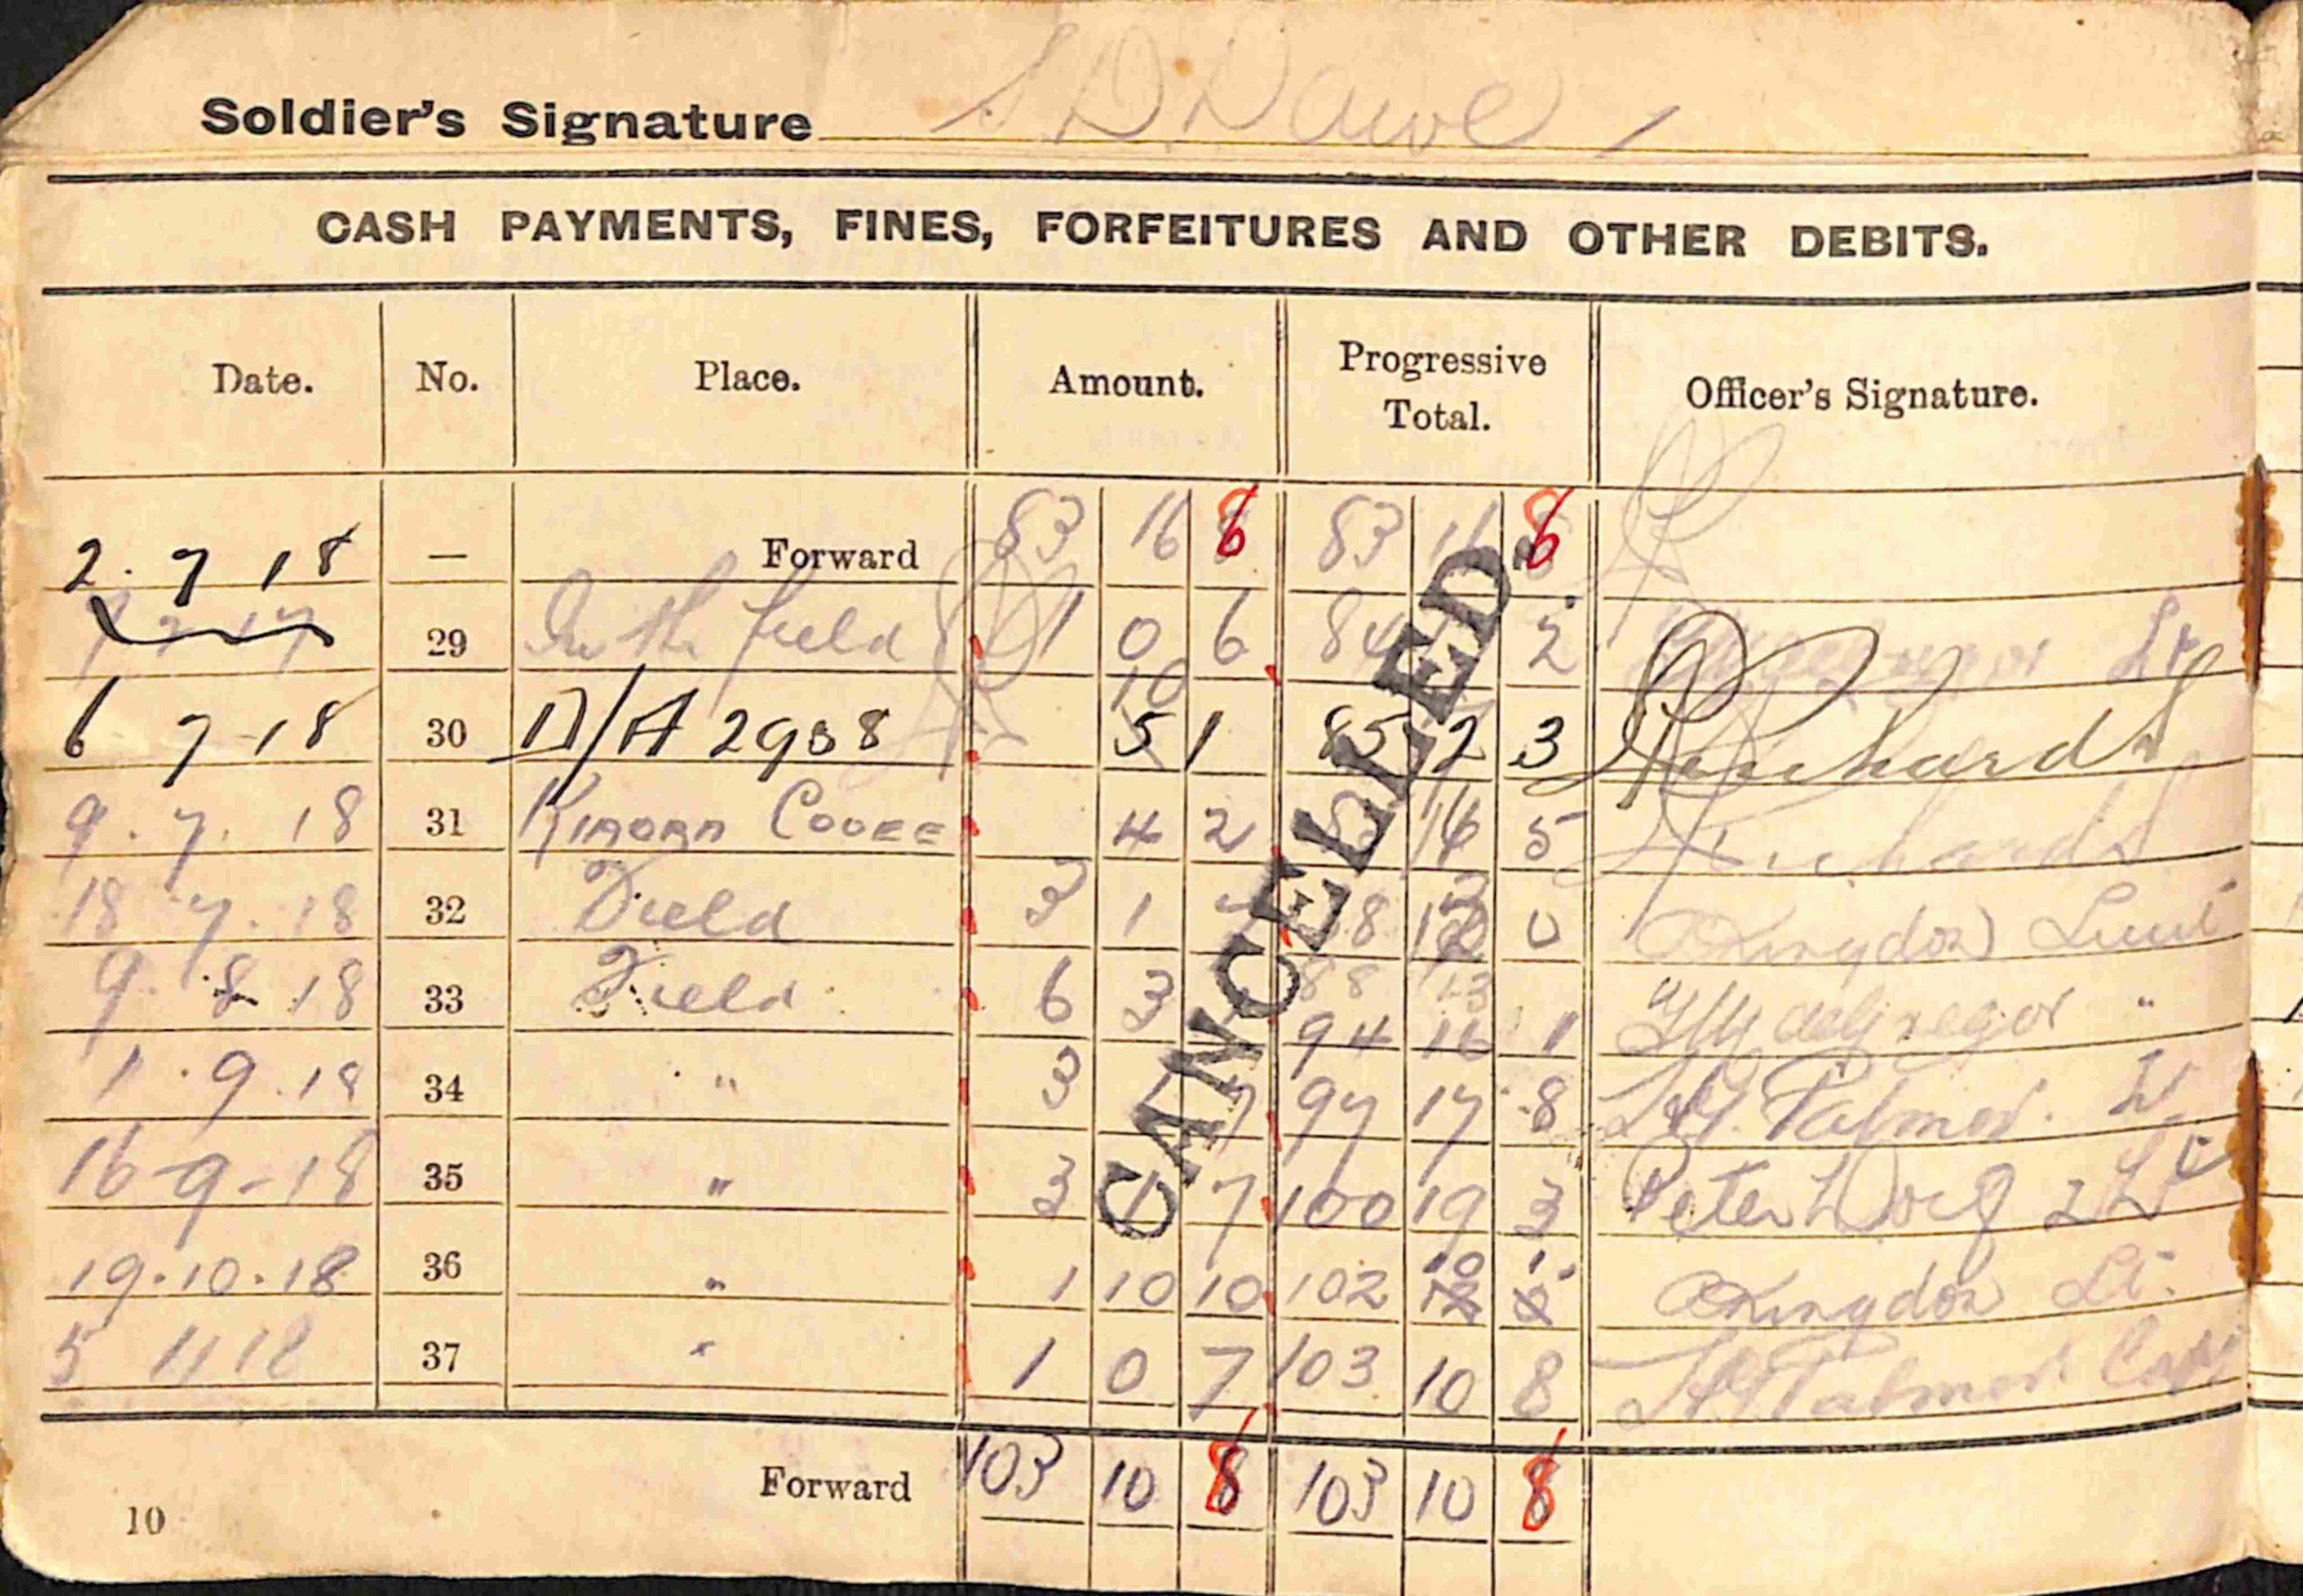 Soldier's Signature S D. Dawe
CASH PAYMENTS, FINES, FORFEITURES AND OTHER DEBITS.
Date. No. Place. Amount. Progressive Total. Officer's Signature.
2. 7 18 — Forward 83 16 8 83 16 8
29 In the field 1 0 6 84 2 Lt
6 7-18 30 D/A 2908 10 5 1 85 2 3
9. 7. 18 31 4 2 14 5
18. 7. 18 32 Field 3 1 88 13 0 Kingdon Lieut
9. 8 18 33 Field 6 3 88 13 94 16 1 "
1. 9. 18 34 " 3 7 97 17 8 Palmer. Lt.
16-9-18 35 " 3 1 7 100 19 3 Peter 2 Lt
19.10.18 36 " 1 10 10 102 10 1 Kingdon Lt.
5 11 18 37 " 1 0 7 103 10 8 Palmer Capt
CANCELLED.
Forward 103 10 8 103 10 8
10